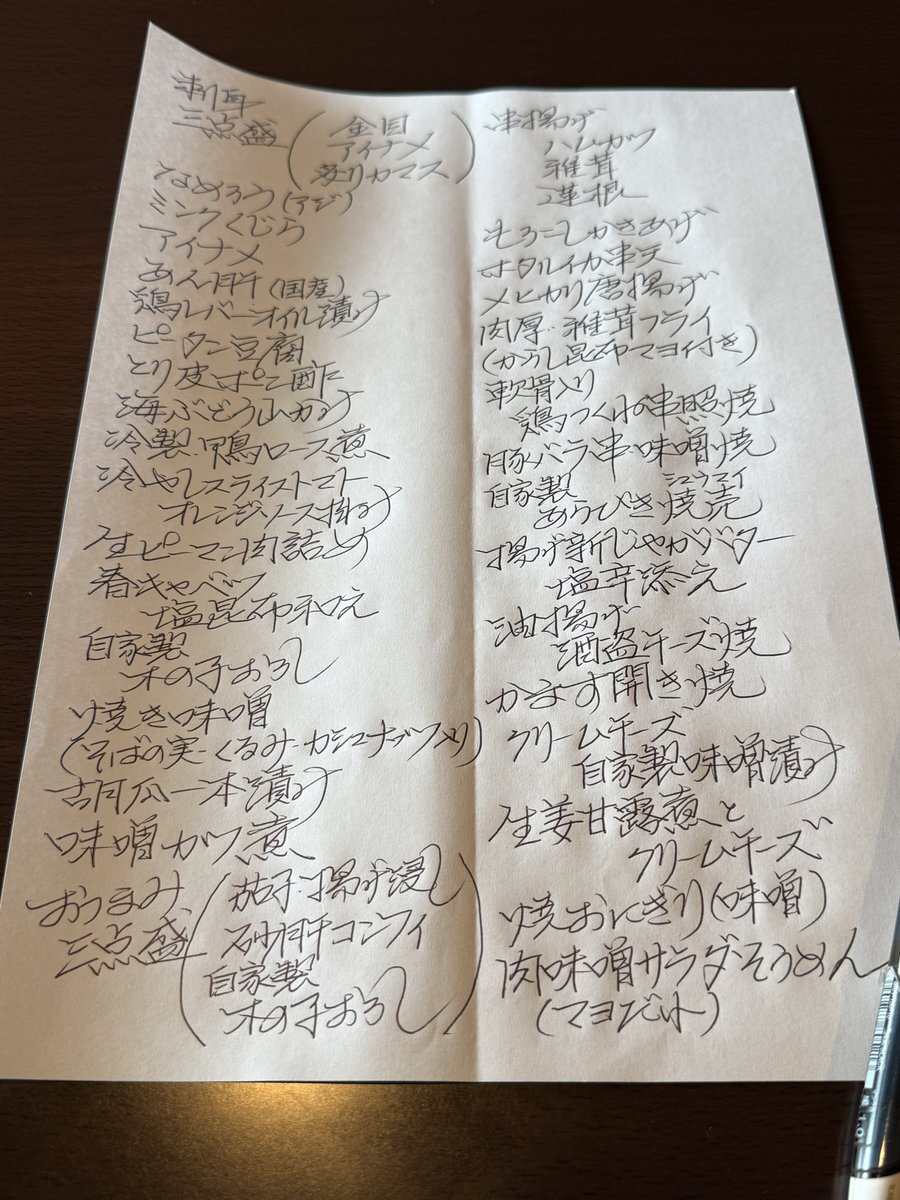 刺身
三点盛
(金目
アイナメ
炙りカマス)
なめろう(アジ)
ミンククくじら
アイナメ
あん肝(国産)
鶏レバーオイル漬け
ピータン豆腐
とり皮ポン酢
海ぶどう山かけ
冷製 鴨ロース煮
冷やしスライストマト
オレンジソース掛け
生ピーマン肉詰め
春キャベツ
塩昆布和え
自家製
木の子おろし
焼き味噌
(そばの実・くるみ・カシューナッツ入り)
胡瓜一本漬け
味噌かつ煮
おつまみ
三点盛
(茄子揚げ浸し
砂肝コンフィ
自家製
木の子おろし)
串揚げ
ハムカツ
椎茸
蓮根
もろこしかきあげ
ホタルイカ串天
メヒカリ唐揚げ
肉厚 椎茸フライ
(からし昆布マヨイ付き)
軟骨入り
鶏つくねの串照焼
豚バラ串味噌焼
自家製
あらびき焼売
シュウマイ
揚げ新じゃがバター
塩辛添え
油揚げ
酒盗チーズ焼
かます開き焼
クリームチーズ
自家製味噌漬け
生姜甘露煮と
クリームチーズ
焼おにぎり(味噌)
肉味噌サラダそうめん
(マヨビット)